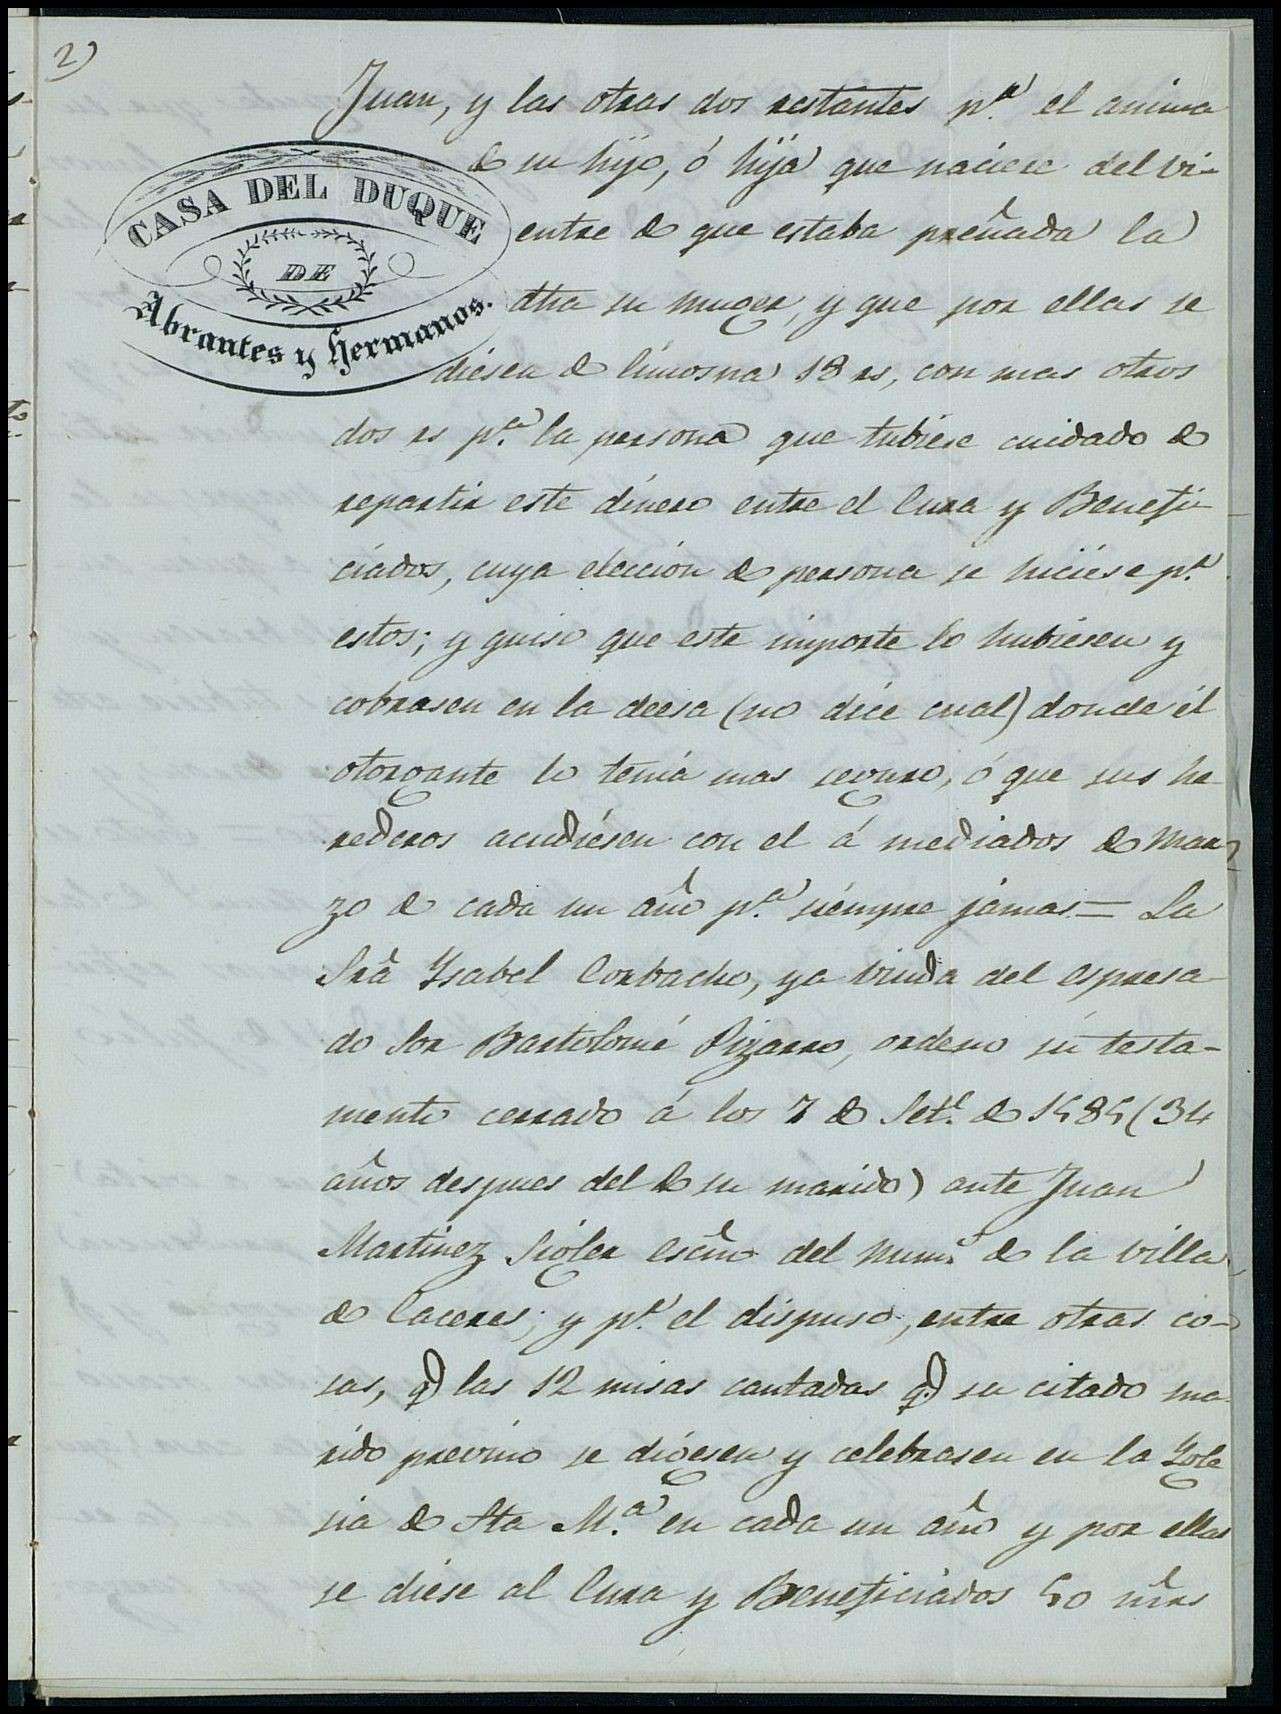 2)
Juan, y las otras dos restantes p.ª el anima
CASA DEL DUQUE
DE
Abrantes y Hermanos.
de su hijo, ó hija que naciese del vi-
entre de que estaba preñada la
dha su muger, y que por ellas se
diesen de limosna 18 rs, con mas otros
dos rs p.ª la persona que tubiese cuidado de
repartir este dinero entre el Cura y Benefi-
ciados, cuya eleccion de persona se hiciese p.r
estos; y quiso que este importe lo hubiesen y
cobrasen en la deesa (no dice cual) donde él
otorgante lo tenia mas seguro, ó que sus he-
rederos acudiesen con el á mediados de Mar-
zo de cada un año p.ª siempre jamas = La
Srã Ysabel Corbacho, ya viuda del espresa-
do Sor Bartolomé Pizarro, ordeno su testa-
mento cerrado á los 7 de Set.e de 1585 (34
años despues del de su marido) ante Juan
Martinez escño del Num.º de la villa
de Caceres; y p.r el dispuso, entre otras co-
sas, q.e las 12 misas cantadas q.e su citado ma-
rido previno se digesen y celebrasen en la Ygle
sia de Sta M.ª en cada un año y por ellas
se diese al Cura y Beneficiados 50 mrs